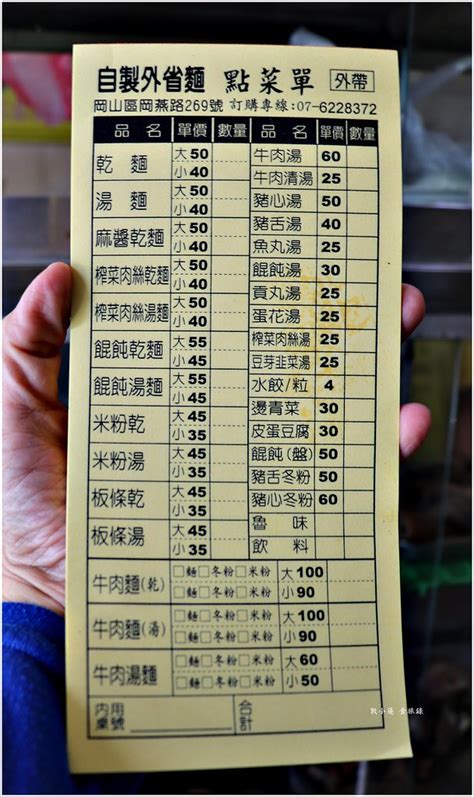 自製外省麵 點菜單 外帶
岡山區岡燕路269號 訂購專線:07-6228372
品名 單價 數量
乾麵 大50
小40
湯麵 大50
小40
麻醬乾麵 大50
小40
榨菜肉絲乾麵 大50
小40
榨菜肉絲湯麵 大50
小40
餛飩乾麵 大55
小45
餛飩湯麵 大55
小45
米粉乾 大45
小35
米粉湯 大45
小35
板條乾 大45
小35
板條湯 大45
小35
品名 單價 數量
牛肉湯 60
牛肉清湯 25
豬心湯 50
豬舌湯 40
魚丸湯 25
餛飩湯 30
貢丸湯 25
蛋花湯 25
榨菜肉絲湯 25
豆芽韭菜湯 25
水餃/粒 4
燙青菜 30
皮蛋豆腐 30
餛飩(盤) 50
豬舌冬粉 50
豬心冬粉 60
魯味
飲料
牛肉麵(乾) □麵□冬粉□米粉 大100
小90
牛肉麵(湯) □麵□冬粉□米粉 大100
小90
牛肉湯麵 □麵□冬粉□米粉 大60
小50
內用
桌號
合
計